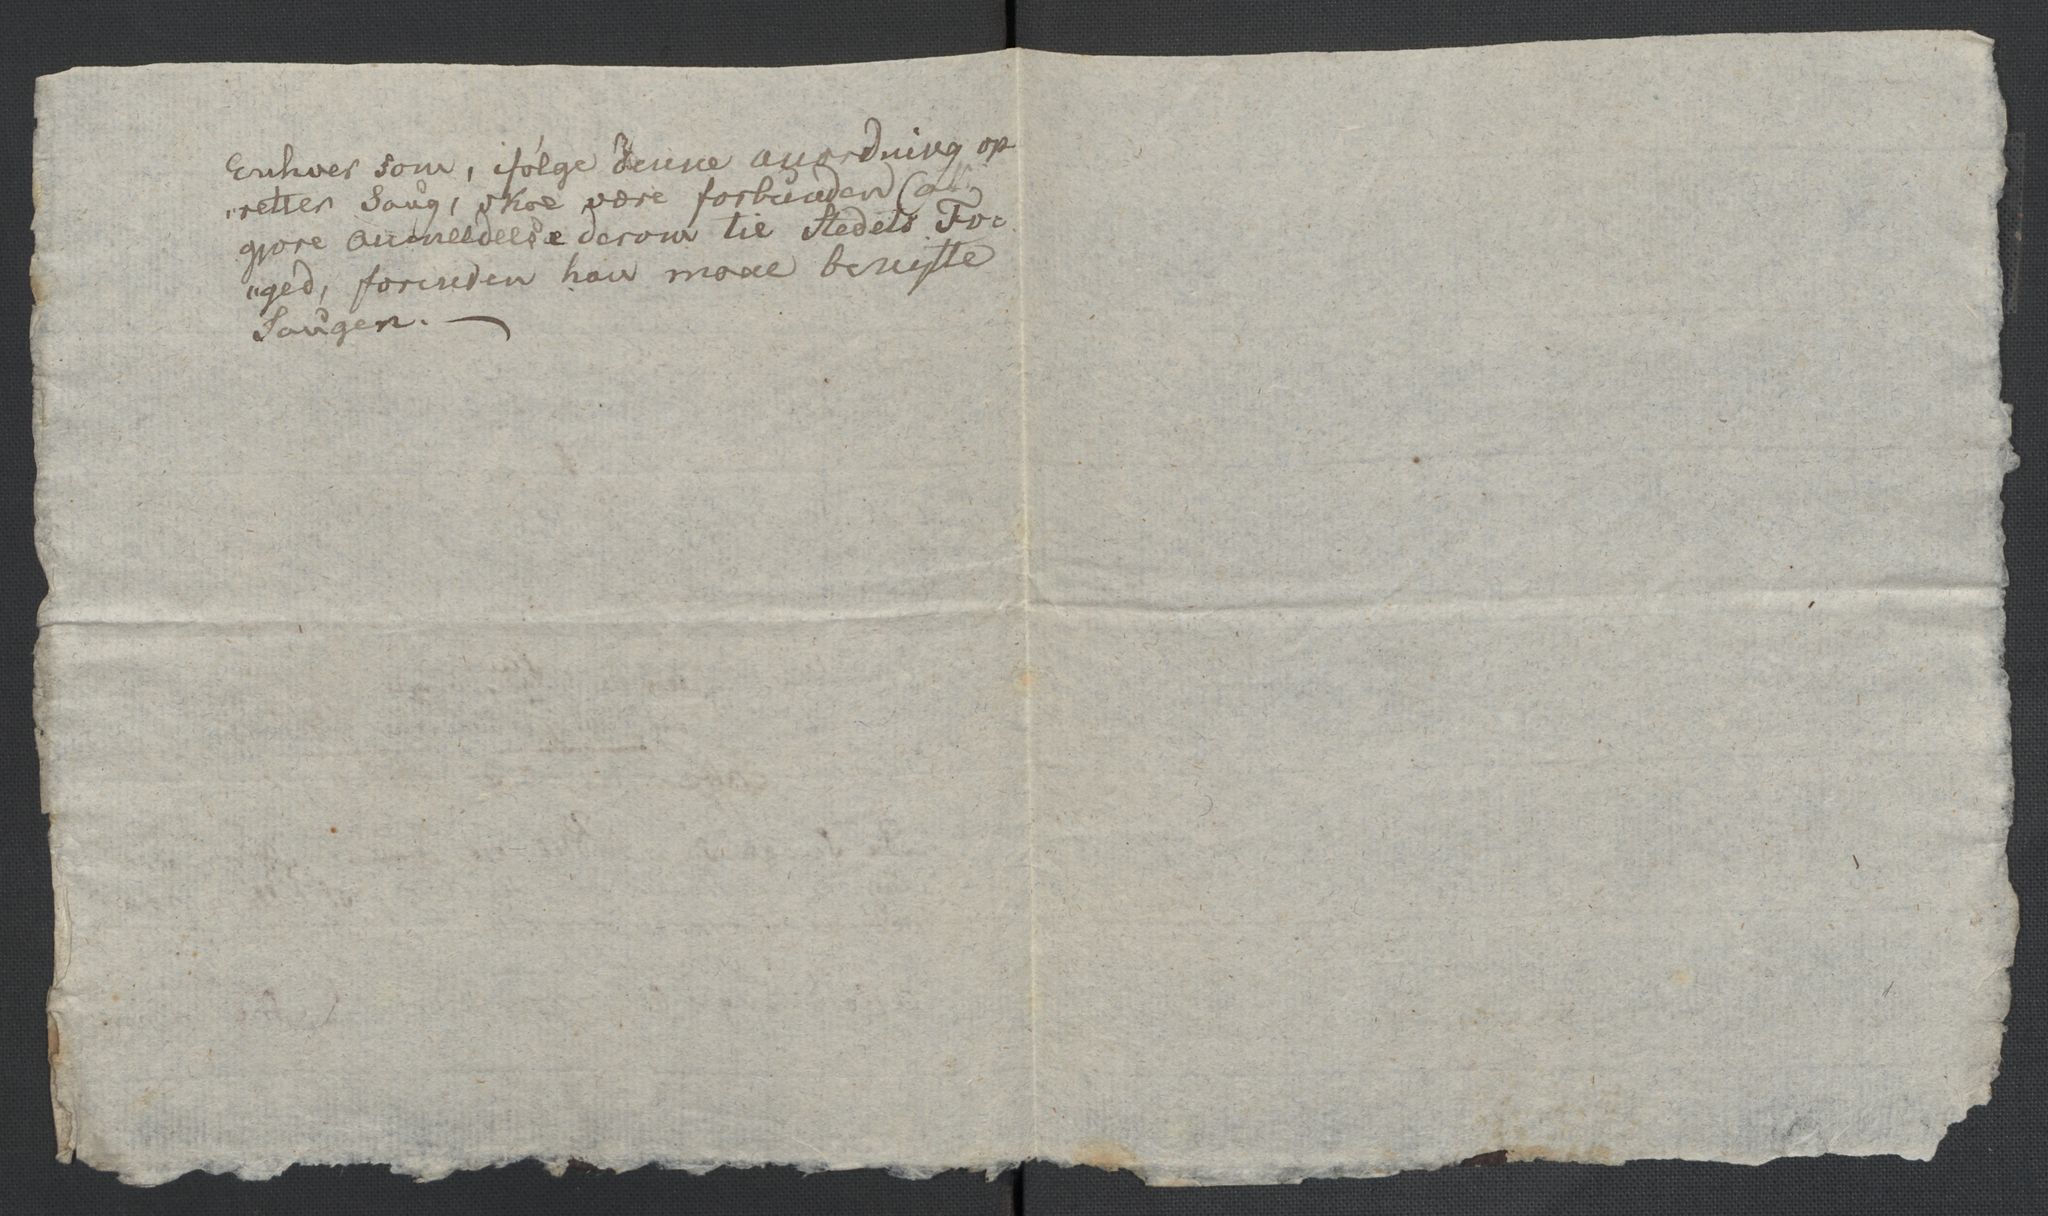 Enhver som, ifølge denne anordning op
"retter Saug, skal være forbunden at
gjøre anmeldelse derom til Stedets Fo=
"ged, forinden han maae benytte
Saugen.